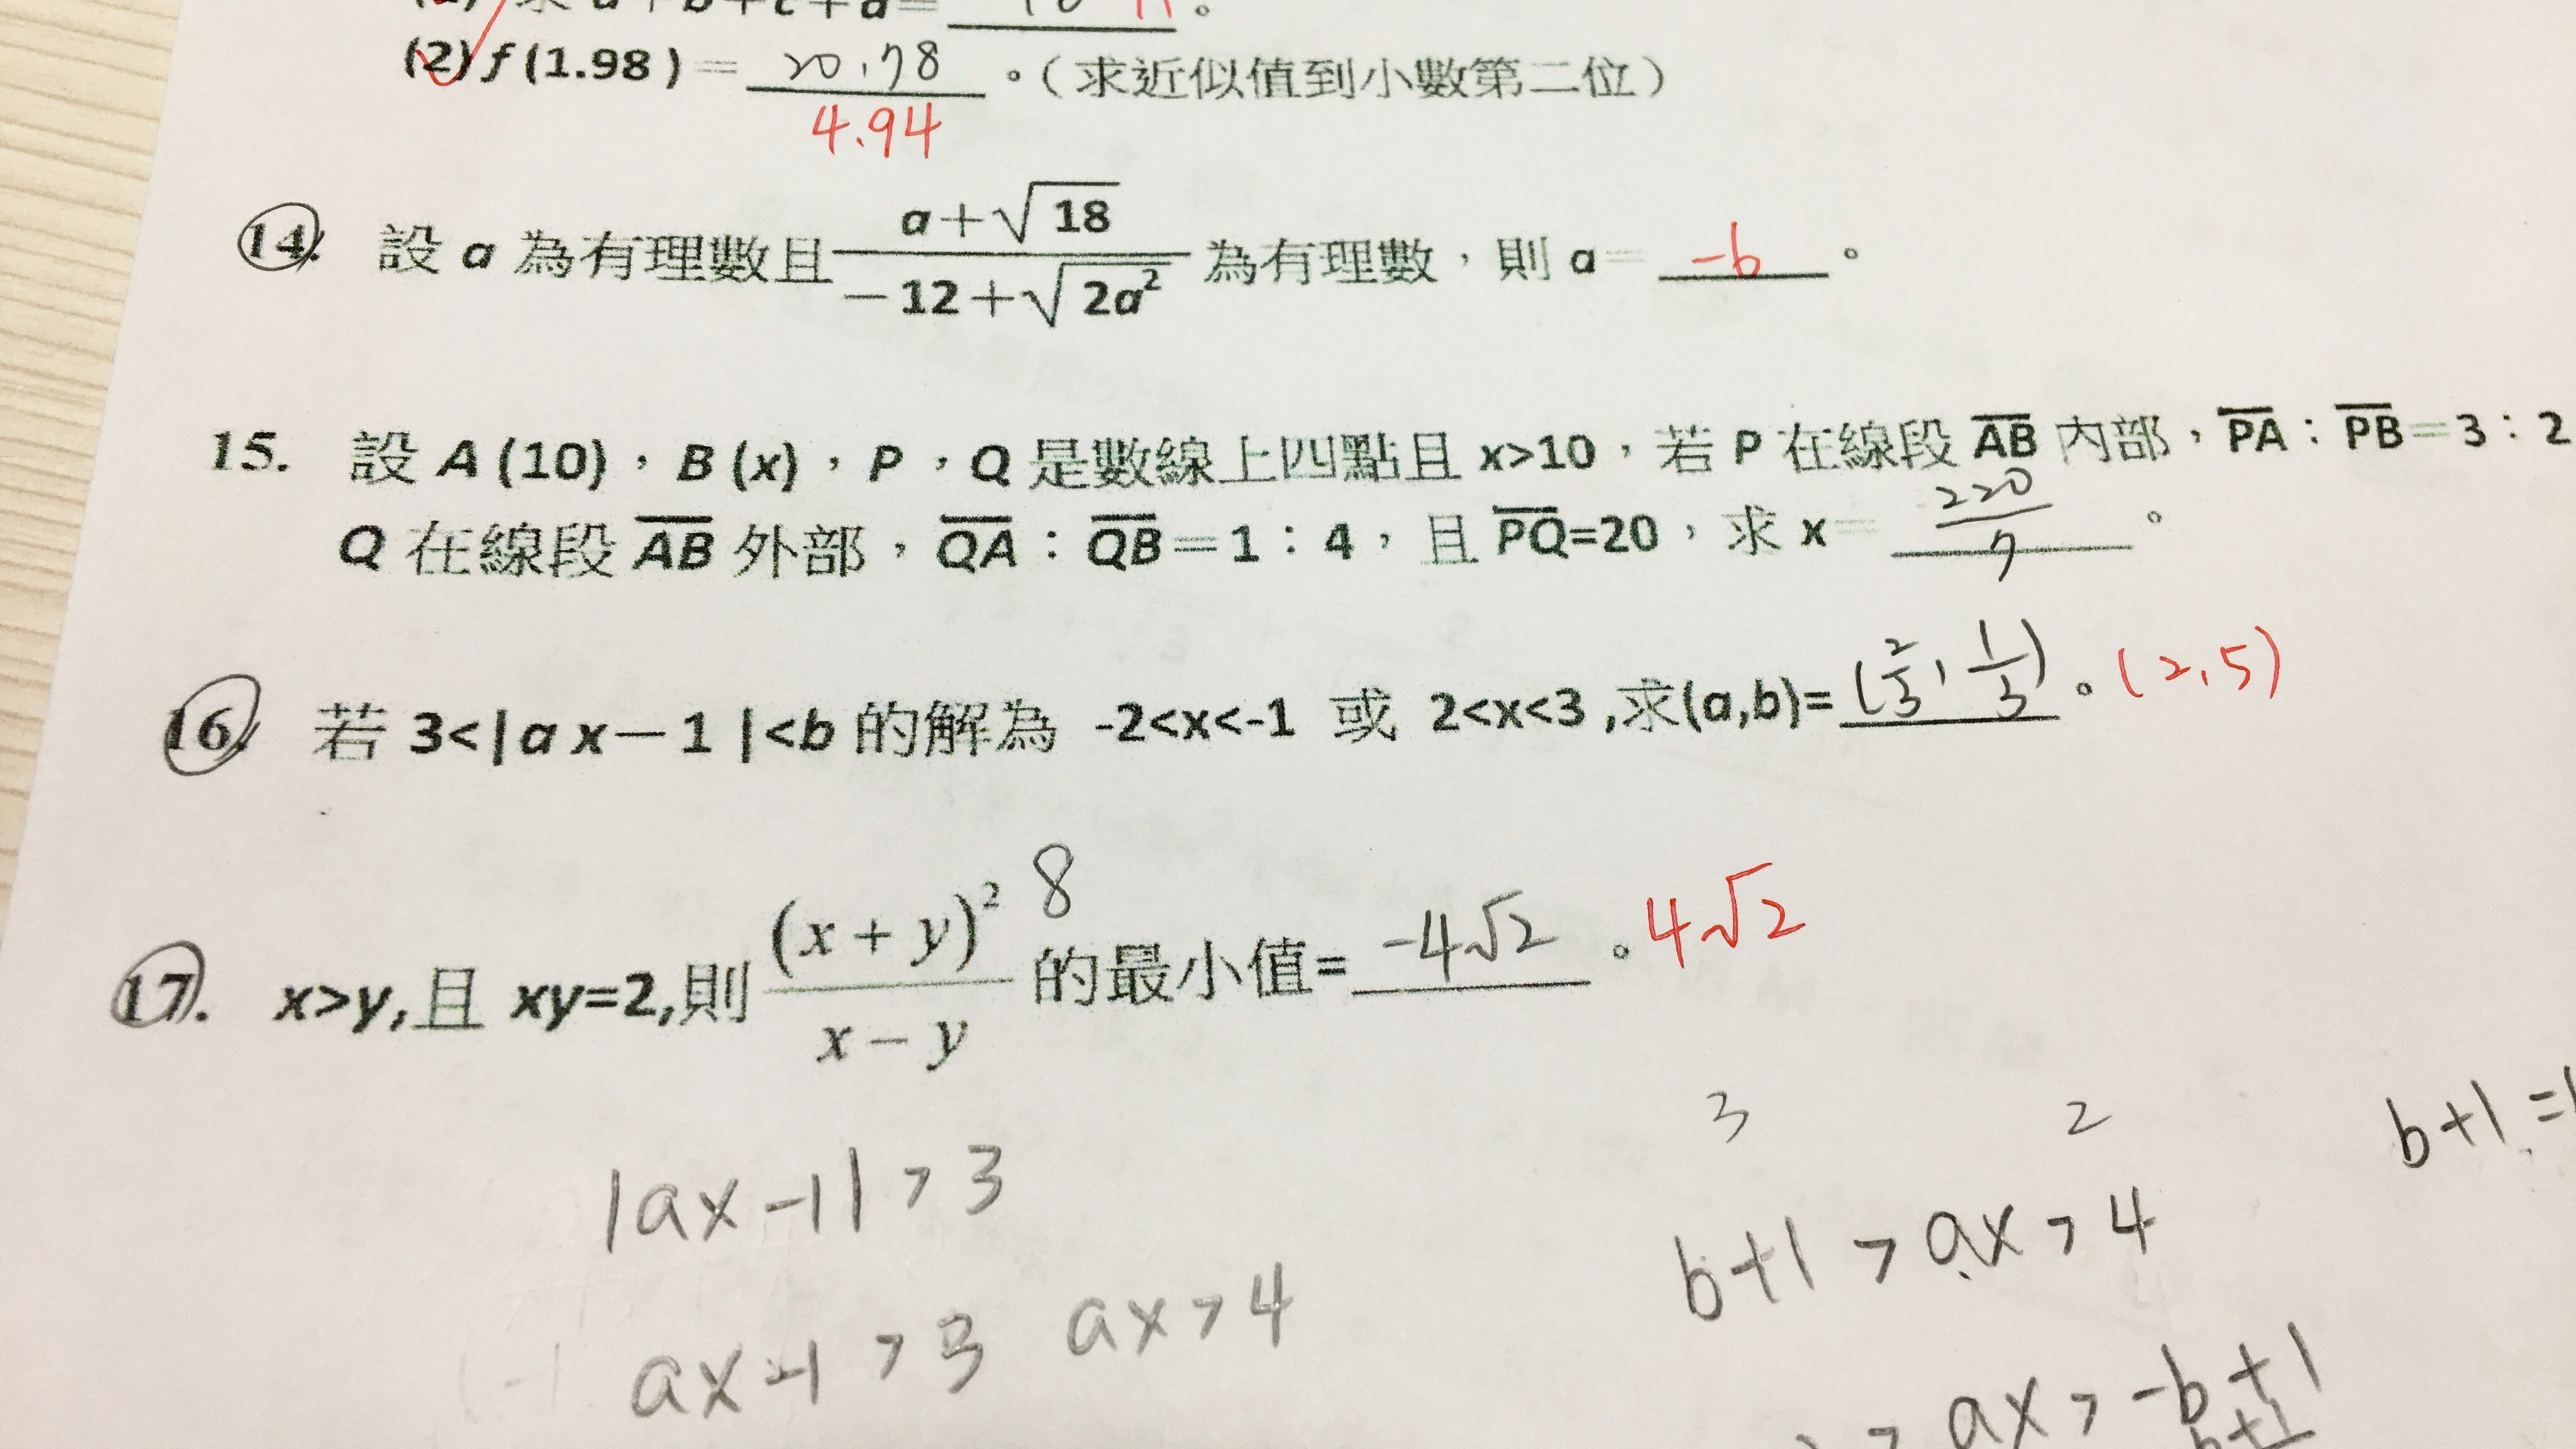 求 a+b+c+d=
(2) f(1.98)= 20.78 。(求近似值到小數第二位)
4.94
14. 設 a 為有理數且 (a+√18)/(-12+√(2a²)) 為有理數，則 a= -6 。
15. 設 A(10)，B(x)，P，Q 是數線上四點且 x>10，若 P 在線段 AB 內部，PA：PB=3：2
Q 在線段 AB 外部，QA：QB=1：4，且 PQ=20，求 x= 220/7 。
16. 若 3<|ax-1|<b 的解為 -2<x<-1 或 2<x<3,求(a,b)= (2/3, 1/3) 。(2,5)
17. x>y,且 xy=2,則 (x+y)²/(x-y) 8 的最小值= -4√2 。4√2
3 2
b+1=
|ax-1|>3
b+1>ax>4
ax-1>3 ax>4
>ax>-b+1